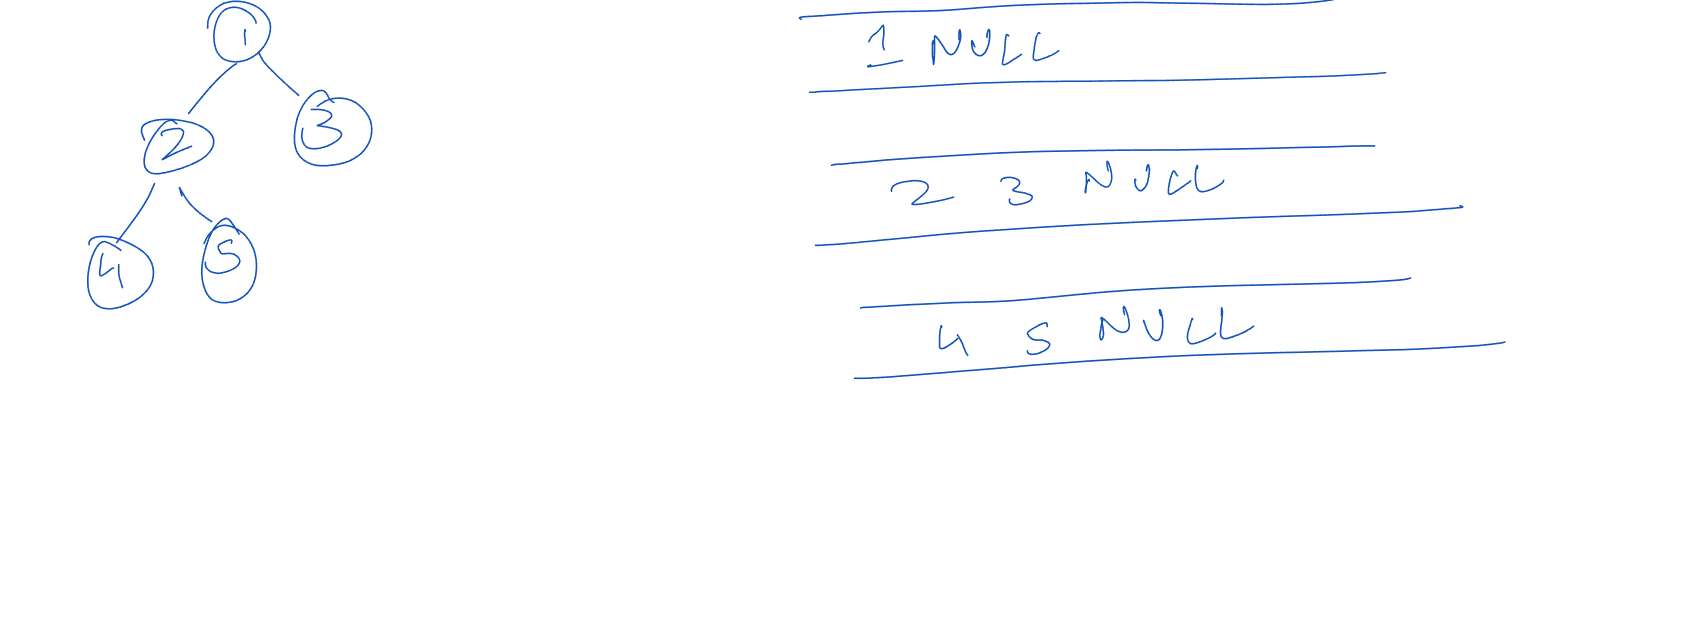 1
2 3
4 5
1 NULL
2 3 NULL
4 5 NULL